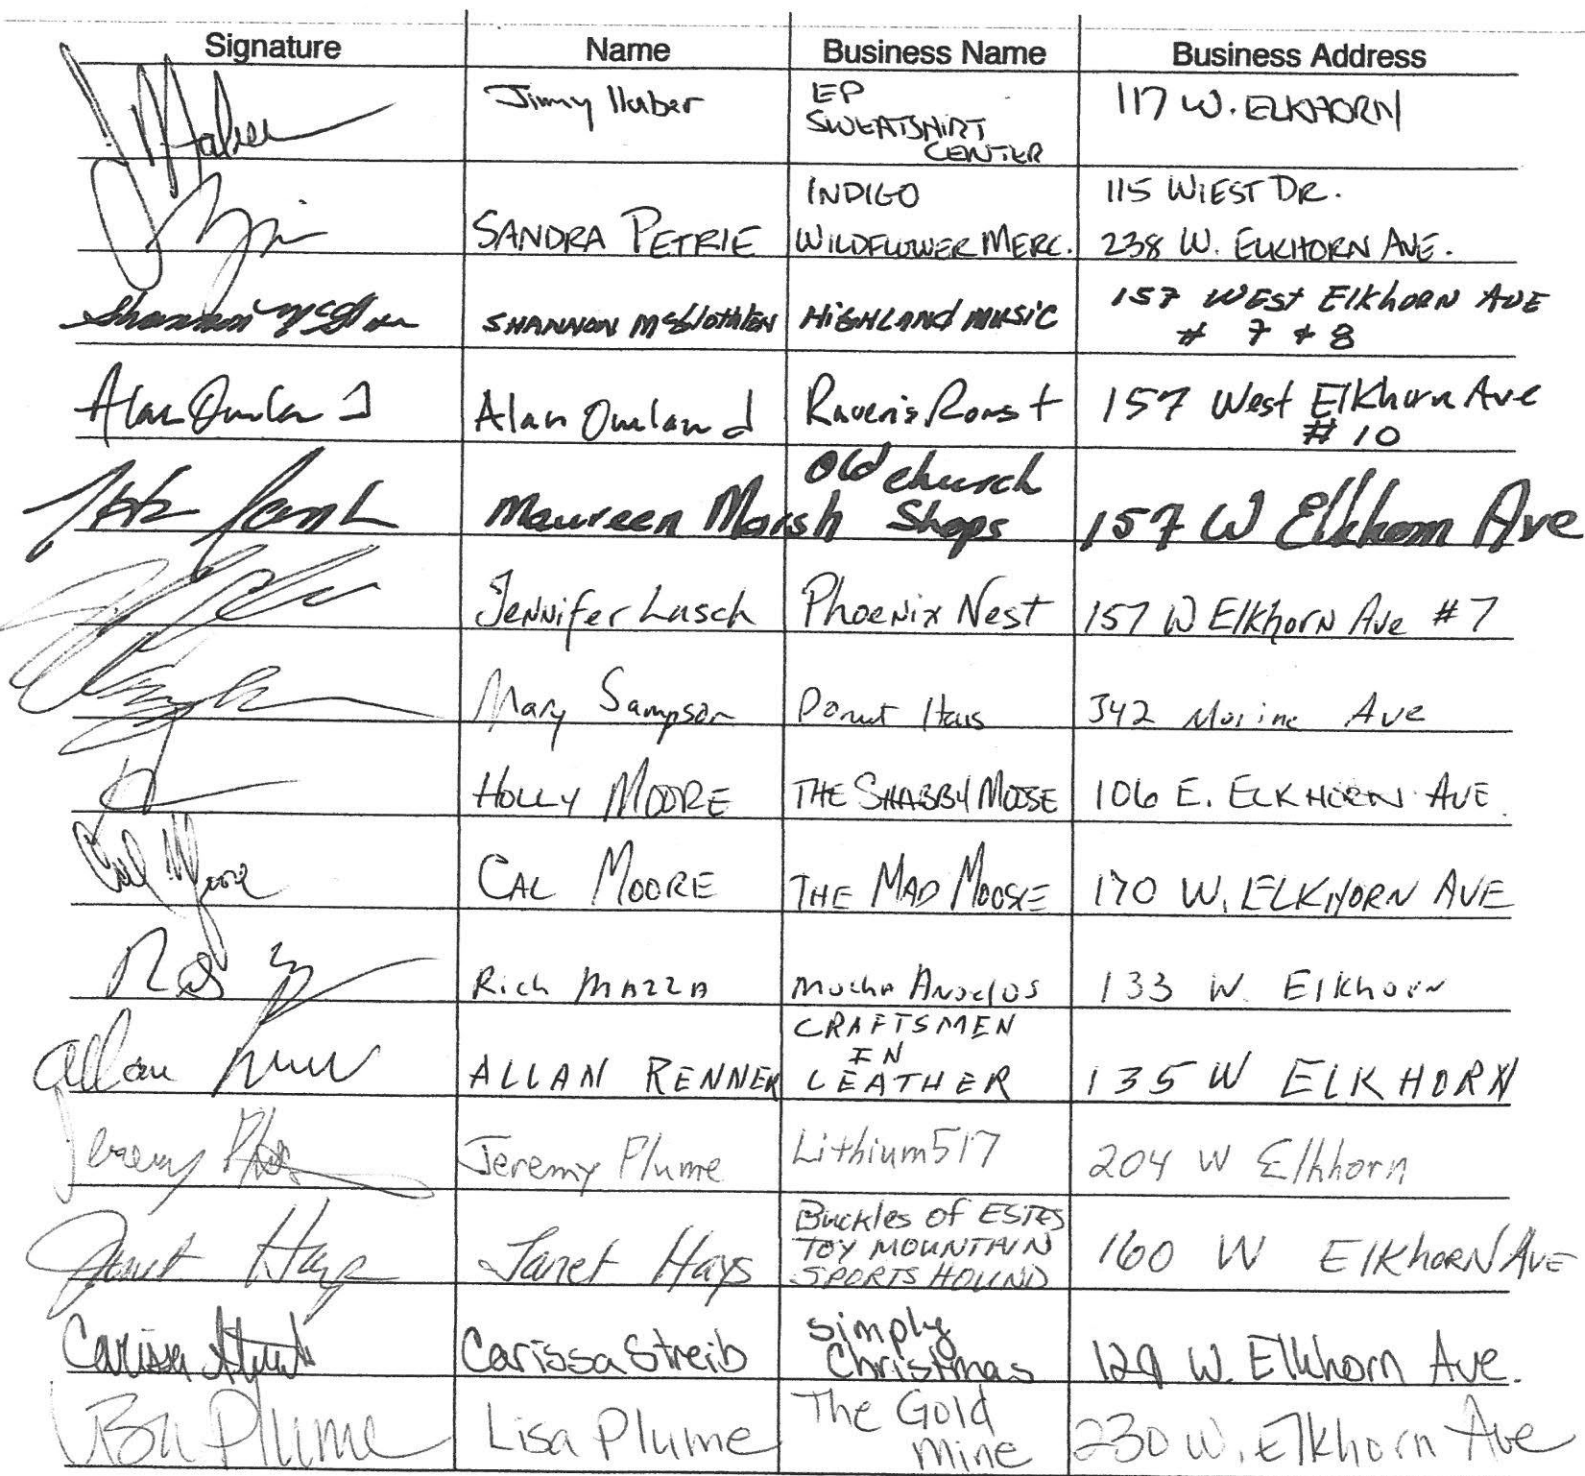 Signature Name Business Name Business Address
Jimmy Huber EP SWEATSHIRT CENTER 117 W. ELKHORN
SANDRA PETRIE INDIGO WILDFLOWER MERC. 115 WIEST DR. 238 W. ELKHORN AVE.
Shannon SHANNON McGlothlen HIGHLAND MUSIC 157 WEST ElkhoRN AVE # 7 + 8
Alan Alan 157 West Elkhorn Ave # 10
Maureen Marsh Old church Shops 157 W Elkhorn Ave
Jennifer Lusch Phoenix Nest 157 W Elkhorn Ave #7
Mary Sampson Donut Haus 342 Ave
HOLLY MOORE THE SHABBY MOOSE 106 E. ELKHORN AVE.
Cal Moore CAL MOORE THE MAD MOOSE 170 W. ELKHORN AVE
Rich MAZZA 133 W. Elkhorn
Allan ALLAN RENNER CRAFTSMEN IN LEATHER 135 W ELKHORN
Jeremy Jeremy Plume Lithium517 204 W Elkhorn
Janet Hays Janet Hays Buckles of ESTES TOY MOUNTAIN SPORTS HOUND 160 W ElkhoRN AVE
Carissa Carissa Streib Simply Christmas 129 W. Elkhorn Ave.
Plume Lisa Plume The Gold Mine 230 W. Elkhorn Ave